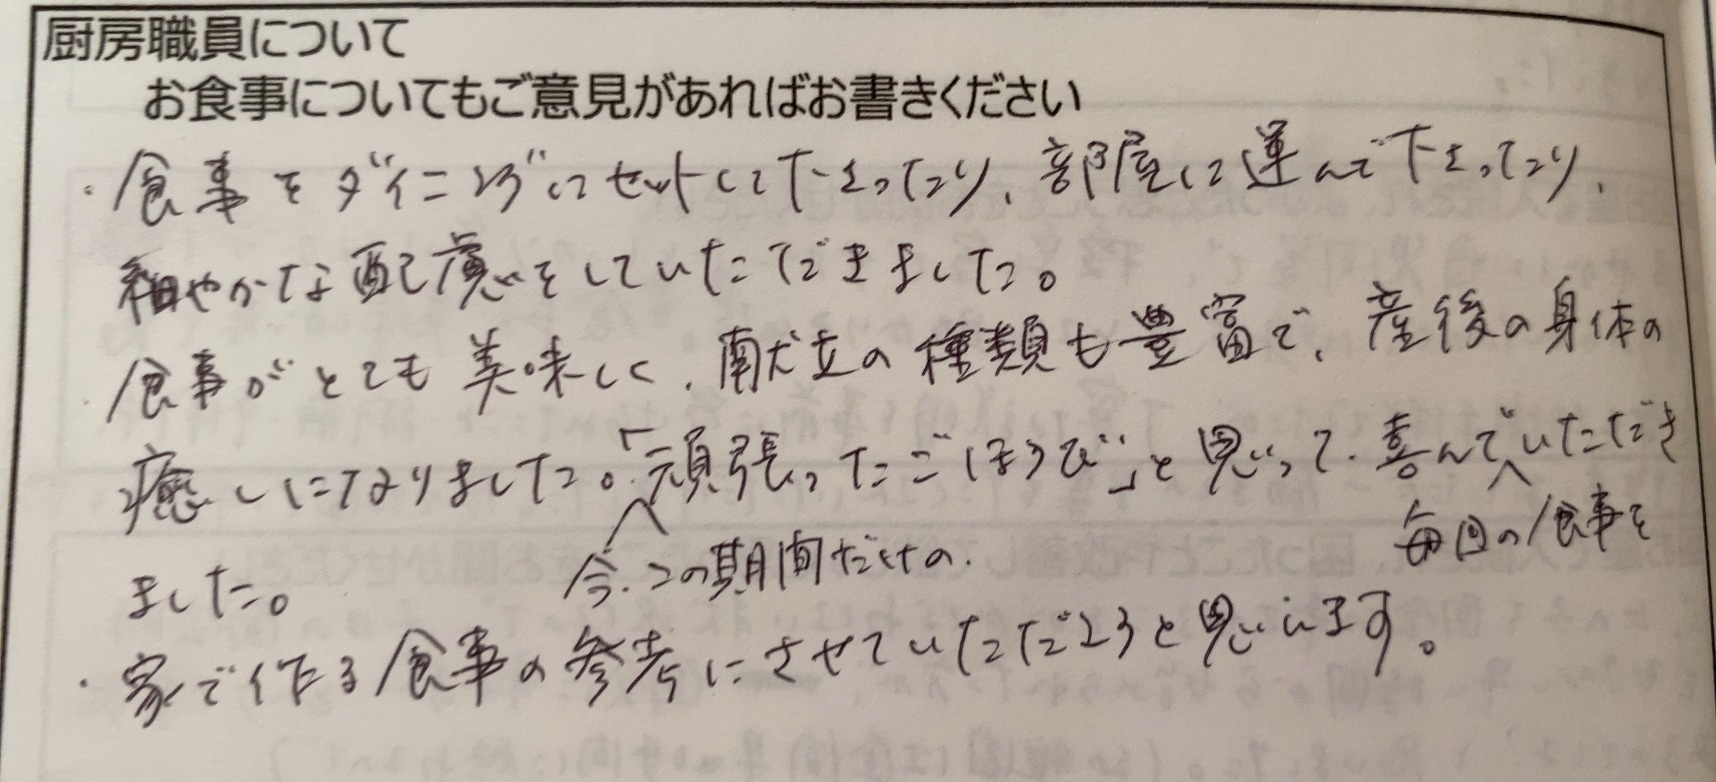 厨房職員について
お食事についてもご意見があればお書きください
・食事をダイニングにセットして下さったり、部屋に運んで下さったり、
細やかな配慮をしていただきました。
・食事がとても美味しく、献立の種類も豊富で、産後の身体の
癒しになりました。「頑張ったごほうび」と思って、喜んでいただき
今、この期間だけの、
毎回の食事を
ました。
・家で作る食事の参考にさせていただこうと思います。